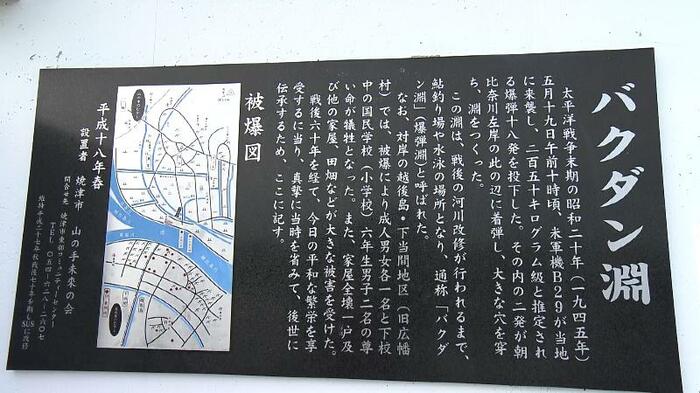 バクダン淵
太平洋戦争末期の昭和二十年（一九四五年）
五月十九日午前十時頃、米軍機B29が当地
に来襲し、二百五十キログラム級と推定され
る爆弾十八発を投下した。その内の二発が朝
比奈川左岸の此の辺に着弾し、大きな穴を穿
ち、淵をつくった。
この淵は、戦後の河川改修が行われるまで、
鮎釣り場や水泳の場所となり、通称「バクダ
ン淵」（爆弾淵）と呼ばれた。
なお、対岸の越後島・下当間地区（旧広幡
村）では、被爆により成人男女各一名と下校
中の国民学校（小学校）六年生男子二名の尊
い命が犠牲となった。また、家屋全壊一戸及
び他の家屋、田畑などが大きな被害を受けた。
戦後六十年を経て、今日の平和な繁栄を享
受するに当り、真摯に当時を省みて、後世に
伝承するため、ここに記す。
被爆図
平成十八年春
設置者　焼津市　山の手未来の会
問合せ先　焼津市東益津コミュニティーセンター
TEL　〇五四-六二八-二六〇七